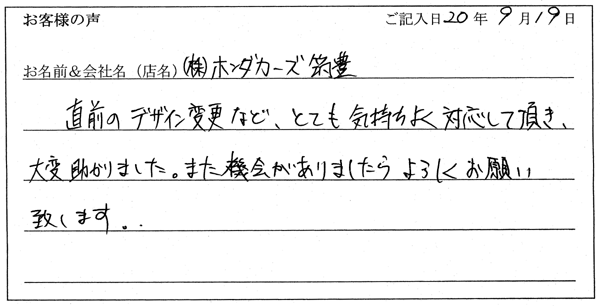 お客様の声 ご記入日 20年 9月 19日
お名前&会社名（店名）(株)ホンダカーズ筑豊
直前のデザイン変更など、とても気持ちよく対応して頂き、
大変助かりました。また機会がありましたらよろしくお願い
致します。